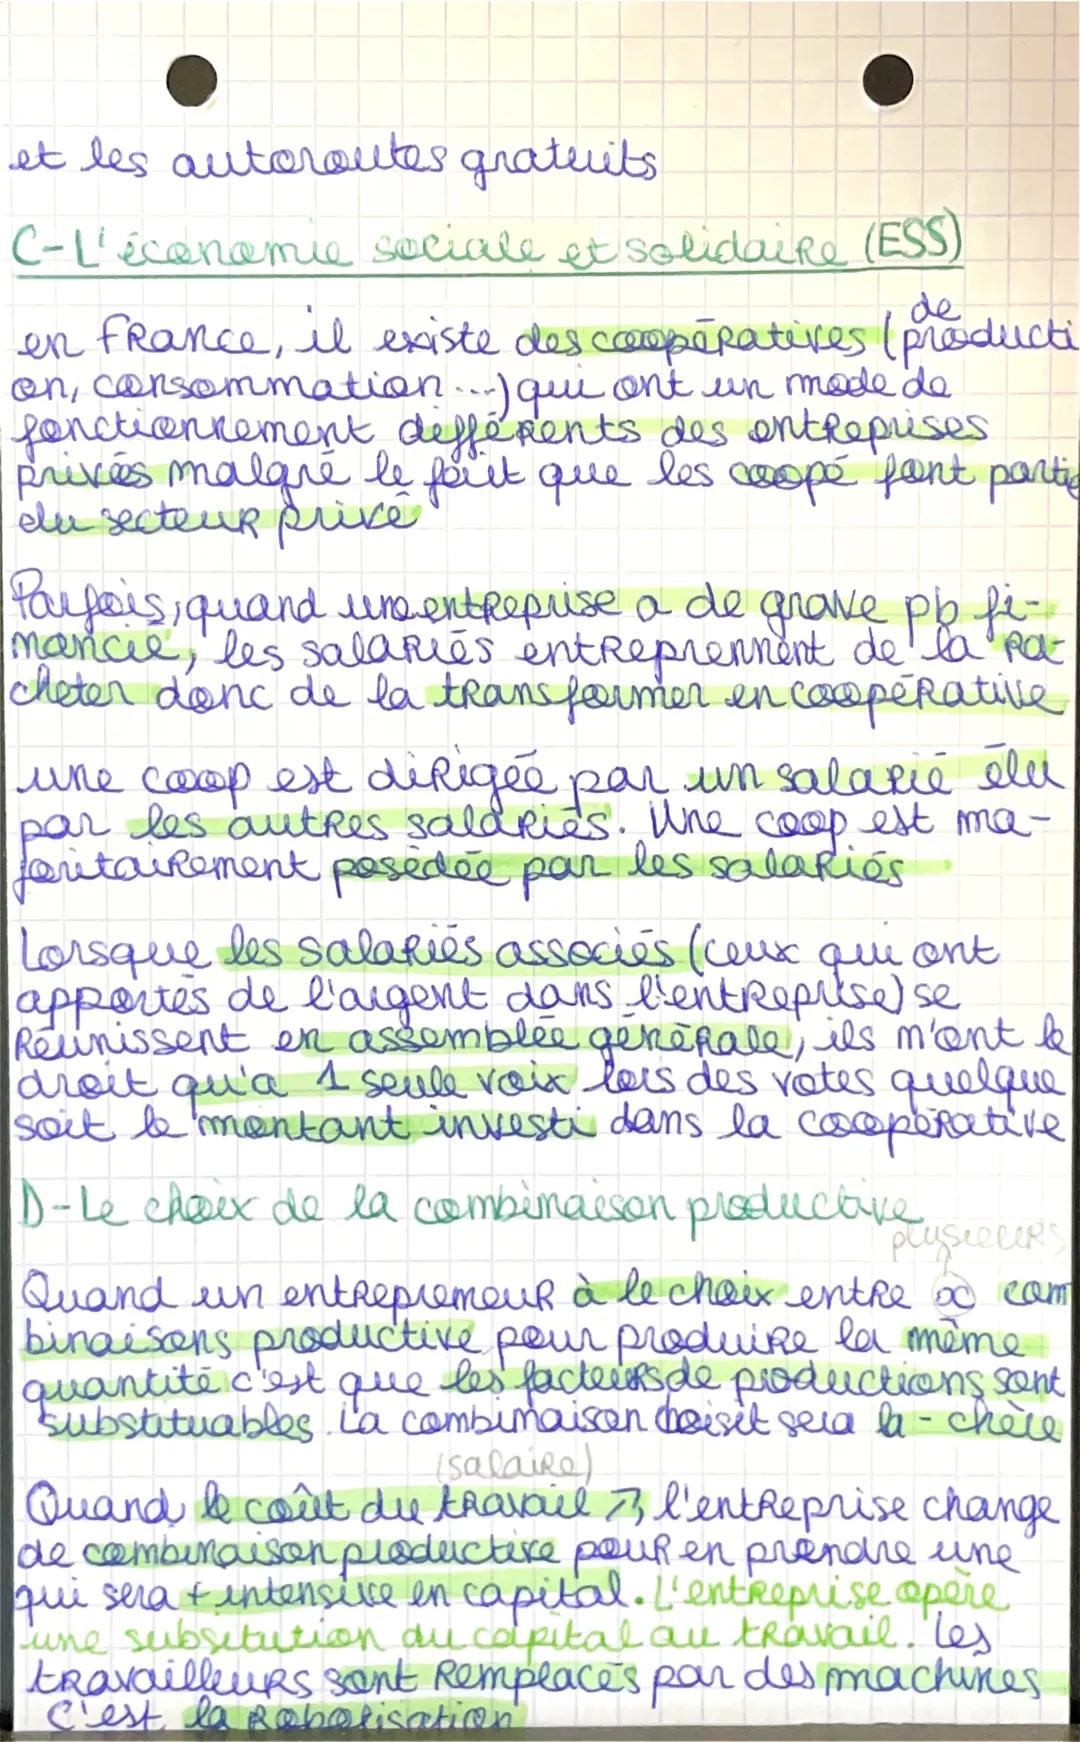 et les autoroutes gratuits
C-L'économie sociale et solidaire (ESS)
de
en France, il existe des coopératives (producti
on, consommation...) qui ont un mode de
fonctionnement différents des entreprises
privés malgré le fait que les coopé font partie
du secteur privé
Parfois, quand une entreprise a de grave pb fi-
nancie, les salariés entreprennent de la ra-
cheter donc de la transformer en coopérative
une coop est dirigée par un salarié élu
par les autres salariés. Une coop est ma-
joritairement posédée par les salariés
Lorsque les salariés associés (ceux qui ont
apportés de l'argent dans l'entreprise) se
réunissent en assemblée générale, ils n'ont le
droit qu'a 1 seule voix lors des votes quelque
soit le montant investi dans la coopérative
D-Le choix de la combinaison productive
plusieurs
Quand un entrepreneur à le choix entre x com
binaisons productive pour produire la même
quantité c'est que les facteurs de productions sont
substituables. La combinaison choisit sera la - chère
(salaire)
Quand le coût du travail ↗, l'entreprise change
de combinaison productive pour en prendre une
qui sera + intensive en capital. L'entreprise opère
une subsitution du capital au travail. Les
travailleurs sont remplacés par des machines
C'est la robotisation